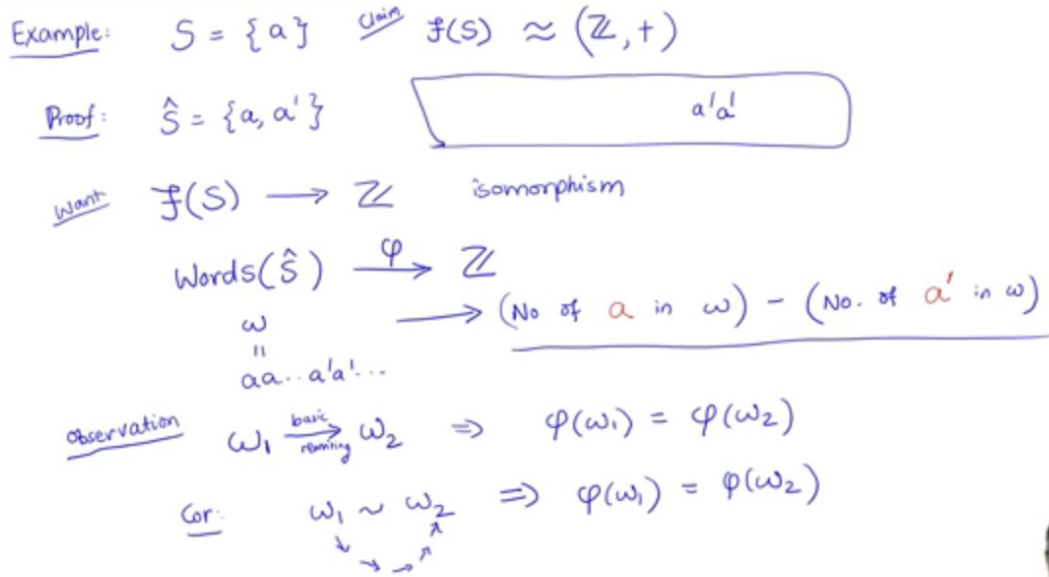 Example: S = {a} Claim F(S) ≈ (ℤ, +)
Proof: Ŝ = {a, a'} a'a'
Want F(S) → ℤ isomorphism
Words(Ŝ) —φ→ ℤ
ω → (No of a in ω) - (No. of a' in ω)
||
aa..a'a'...
Observation ω₁ —basic rewriting→ ω₂ ⇒ φ(ω₁) = φ(ω₂)
Cor: ω₁ ~ ω₂ ⇒ φ(ω₁) = φ(ω₂)